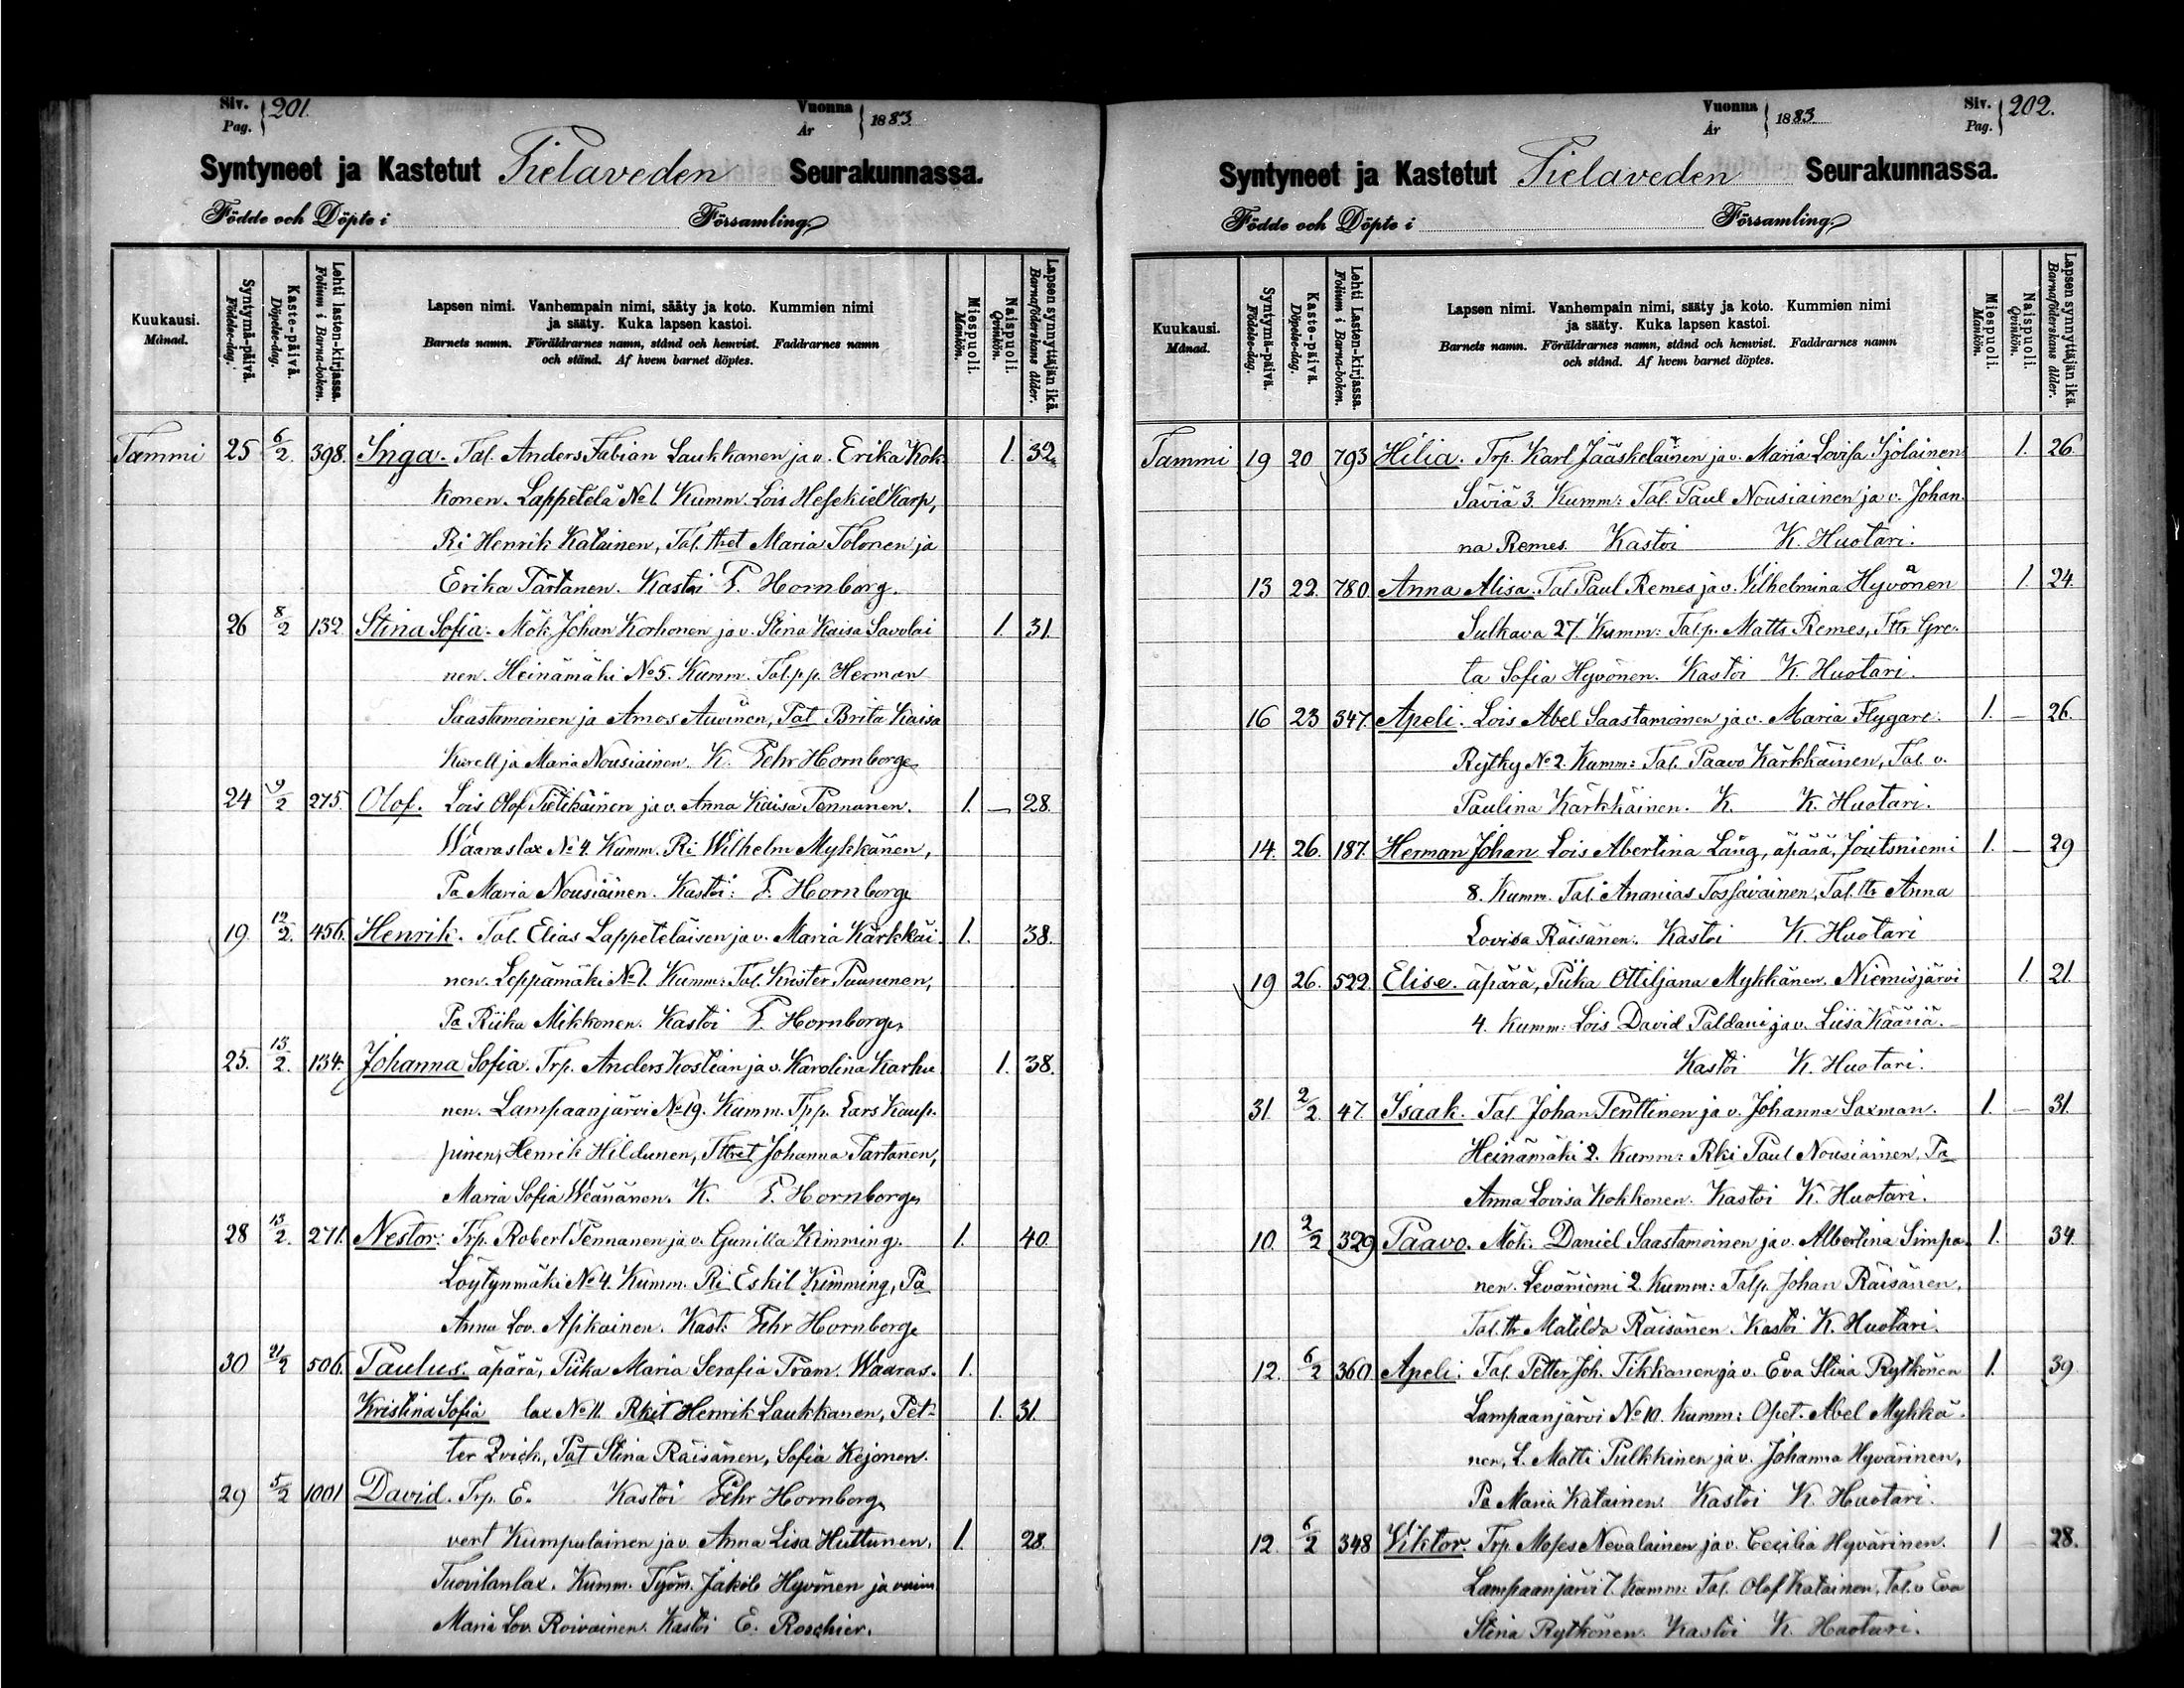 Siv. Pag. 201. Vuonna År 1883.
Syntyneet ja Kastetut Pielaveden Seurakunnassa.
Födde och Döpte i Församling.
Kuukausi. Månad.
Syntymä-päivä. Födelse-dag.
Kaste-päivä. Döpelse-dag.
Lehti lasten-kirjassa. Folium i Barna-boken.
Lapsen nimi. Vanhempain nimi, sääty ja koto. Kummien nimi
ja sääty. Kuka lapsen kastoi.
Barnets namn. Föräldrarnes namn, stånd och hemvist. Faddrarnes namn
och stånd. Af hvem barnet döptes.
Miespuoli. Mankön.
Naispuoli. Qvinkön.
Lapsen synnyttäjän ikä. Barnaföderskans ålder.
Tammi 25 6/2. 398. Inga. Tal. Anders Fabian Laukkanen ja v. Erika Kok- 1. 32.
konen. Lappetelä No 1. Kumm. Lois Hesekiel Karp,
Ri Henrik Katainen, Tal. ttret Maria Tolonen ja
Erika Tärtanen. Kastoi F. Hornborg.
26 8/2 132 Stina Sofia. Mök. Johan Korhonen ja v. Stina Kaisa Savolai 1. 31.
nen. Heinämäki No 5. Kumm. Tal. pp. Herman
Saastamoinen ja Amos Auvinen, Tat Brita Kaisa
Karell ja Maria Nousiainen. K. Fehr Hornborg
24 9/2 275. Olof. Lois Olof Pietikäinen ja v. Anna Kaisa Pennanen. 1. — 28.
Waaraslax No 4. Kumm. Ri Wilhelm Mykkänen,
Pa Maria Nousiainen. Kastoi: F. Hornborg
19. 12/2. 456. Henrik. Tal. Elias Lappeteläisen ja v. Maria Kärkkäi- 1. 38.
nen. Leppämäki No 1. Kumm: Tal. Krister Puusunen,
Pa Riika Mikkonen. Kastoi F. Hornborg
25. 13/2. 134. Johanna Sofia. Trp. Anders Kostian ja v. Karolina Karhu 1. 38.
nen. Lampaanjärvi No 19. Kumm. Tpp. Lars Kaup-
pinen, Henrik Hildunen, Tttret Johanna Tartanen,
Maria Sofia Weänänen. K. F. Hornborg
28 13/2. 271. Nestor: Trp. Robert Pennanen ja v. Gunilla Kimming. 1. 40.
Löytynmäki No 4. Kumm. Ri Eskil Kimming, Pa
Anna Lov. Apikainen. Kast: Fehr Hornborg
30 21/2 506. Paulus. äpärä, Piika Maria Serafia Pram. Waaras- 1.
Kristina Sofia lax No 11. Rkit Henrik Laukkanen, Pet- 1. 31.
ter Qvick, Pat Stina Räisänen, Sofia Kejonen.
29 5/2 1001 David. Trp. E. Kastoi Fehr Hornborg
vert Kumpulainen ja v. Anna Lisa Huttunen. 1. 28.
Tuovilanlax. Kumm. Tyom. Jakob Hyvönen ja vaim
Maria Lov. Roivainen. Kastoi E. Roschier.
Vuonna År 1883. Siv. Pag. 202.
Syntyneet ja Kastetut Pielaveden Seurakunnassa.
Födde och Döpte i Församling.
Kuukausi. Månad.
Syntymä-päivä. Födelse-dag.
Kaste-päivä. Döpelse-dag.
Lehti Lasten-kirjassa. Folium i Barna-boken.
Lapsen nimi. Vanhempain nimi, sääty ja koto. Kummien nimi
ja sääty. Kuka lapsen kastoi.
Barnets namn. Föräldrarnes namn, stånd och hemvist. Faddrarnes namn
och stånd. Af hvem barnet döptes.
Miespuoli. Mankön.
Naispuoli. Qvinkön.
Lapsen synnyttäjän ikä. Barnaföderskans ålder.
Tammi 19 20 793 Hilia. Trp. Karl Jääskeläinen ja v. Maria Lovisa Sjölainen 1. 26.
Säviä 3. Kumm: Tal. Paul Nousiainen ja v. Johan-
na Remes. Kastoi K. Huotari.
13 22. 780. Anna Alisa. Tal. Paul Remes ja v. Vilhelmina Hyvönen 1. 24.
Sulkava 27. Kumm: Tal. p. Matts Remes, Ttr Gre-
ta Sofia Hyvönen. Kastoi K. Huotari.
16 23 347. Apeli. Lois Abel Saastamoinen ja v. Maria Flygare. 1. — 26.
Rytky No 2. Kumm: Tal. Paavo Kärkkäinen, Tal. v.
Paulina Kärkkäinen. K. K. Huotari.
14. 26. 187. Herman Johan. Lois Abertina Lång, äpärä, Joutsniemi 1. — 29
8. Kumm. Tal. Ananias Tossavainen, Tal. ttr Anna
Lovisa Räisänen. Kastoi K. Huotari
19 26. 522. Elise. äpärä, Piika Ottiljana Mykkänen. Niemisjärvi 1. 21.
4. Kumm: Lois David Paldani ja v. Liisa Kääriä.
Kastoi K. Huotari.
31. 2/2. 47. Isaak. Tal. Johan Penttinen ja v. Johanna Saxman. 1. — 31.
Heinämäki 2. Kumm: Rki Paul Nousiainen, Pa
Anna Lovisa Kokkonen. Kastoi K. Huotari.
10. 2/2 329 Paavo. Mök. Daniel Saastamoinen ja v. Albertina Simpa- 1. 34.
nen. Leväniemi 2. Kumm: Talp. Johan Räisänen,
Tal. ttr Matilda Räisänen. Kastoi K. Huotari.
12. 6/2 360. Apeli. Tal. Petter Joh. Tikkanen ja v. Eva Stina Rytkönen 1. 39.
Lampaanjärvi No 10. Kumm: Opet. Abel Mykkä-
nen, L. Matti Pulkkinen ja v. Johanna Hyvärinen,
Pa Maria Katainen. Kastoi K. Huotari.
12. 6/2 348 Viktor. Trp. Moses Nevalainen ja v. Cecilia Hyvärinen. 1 — 28.
Lampaanjärvi 7. Kumm: Tal. Olof Katainen, Tal. v Eva
Stina Rytkönen. Kastoi K. Huotari.